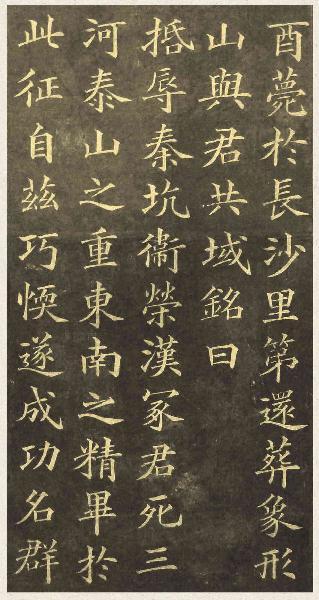 酉薨於長沙里第還葬象形
山與君共域銘曰
抵辱秦坑衞榮漢冢君死三
河泰山之重東南之精畢於
此征自茲巧愞遂成功名群